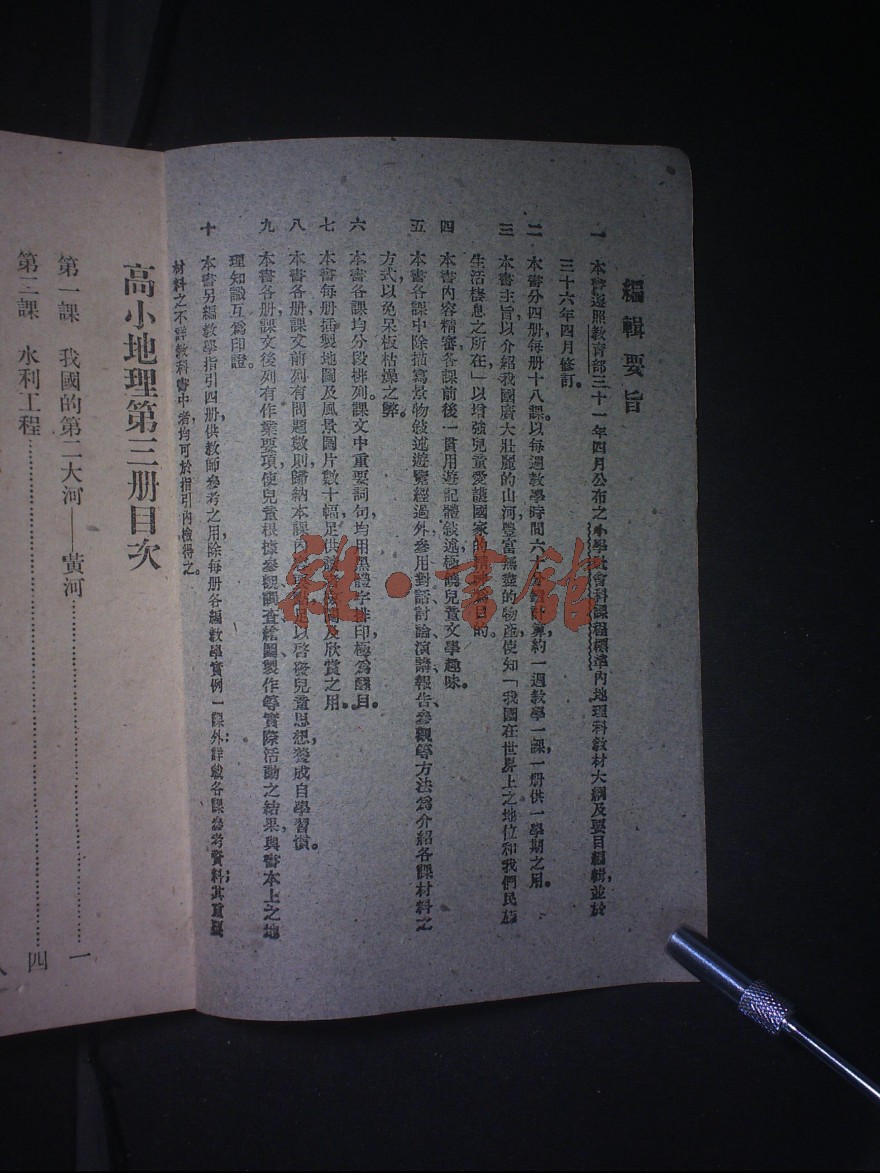 編輯要旨
一 本書遵照教育部三十一年四月公布之小學社會科課程標準內地理科教材大綱及要目編輯，並於
三十六年四月修訂。
二 本書分四册，每册十八課，以每週教學時間六十分鐘計算，約一週教學一課，一册供一學期之用。
三 本書主旨，以介紹我國廣大壯麗的山河，豐富無盡的物產，使知「我國在世界上之地位和我們民族
生活棲息之所在」以增強兒童愛護國家的精神爲目的。
四 本書內容精審，各課前後一貫，用遊記體敍述，極饒兒童文學趣味。
五 本書各課中除描寫景物，敍述遊覽經過外，參用對話、討論、演講、報告、參觀等方法，爲介紹各課材料之
方式，以免呆板枯燥之弊。
六 本書各課均分段排列。課文中重要詞句，均用黑體字排印，極爲醒目。
七 本書每册插製地圖及風景圖片數十幅，足供讀者及欣賞之用。
八 本書各册課文前，列有問題數則，歸納本課內容，足以啓發兒童思想，養成自學習慣。
九 本書各册課文後，列有作業要項，使兒童根據參觀、調查、繪圖、製作等實際活動之結果，與書本上之地
理知識互爲印證。
十 本書另編教學指引四册，供教師參考之用，除每册各編教學實例一課外，詳載各課參考資料；其重要
材料之不詳教科書中者，均可於指引內檢得之。
高小地理第三册目次
第一課 我國的第二大河——黃河…………一
第二課 水利工程…………四
雜·書館